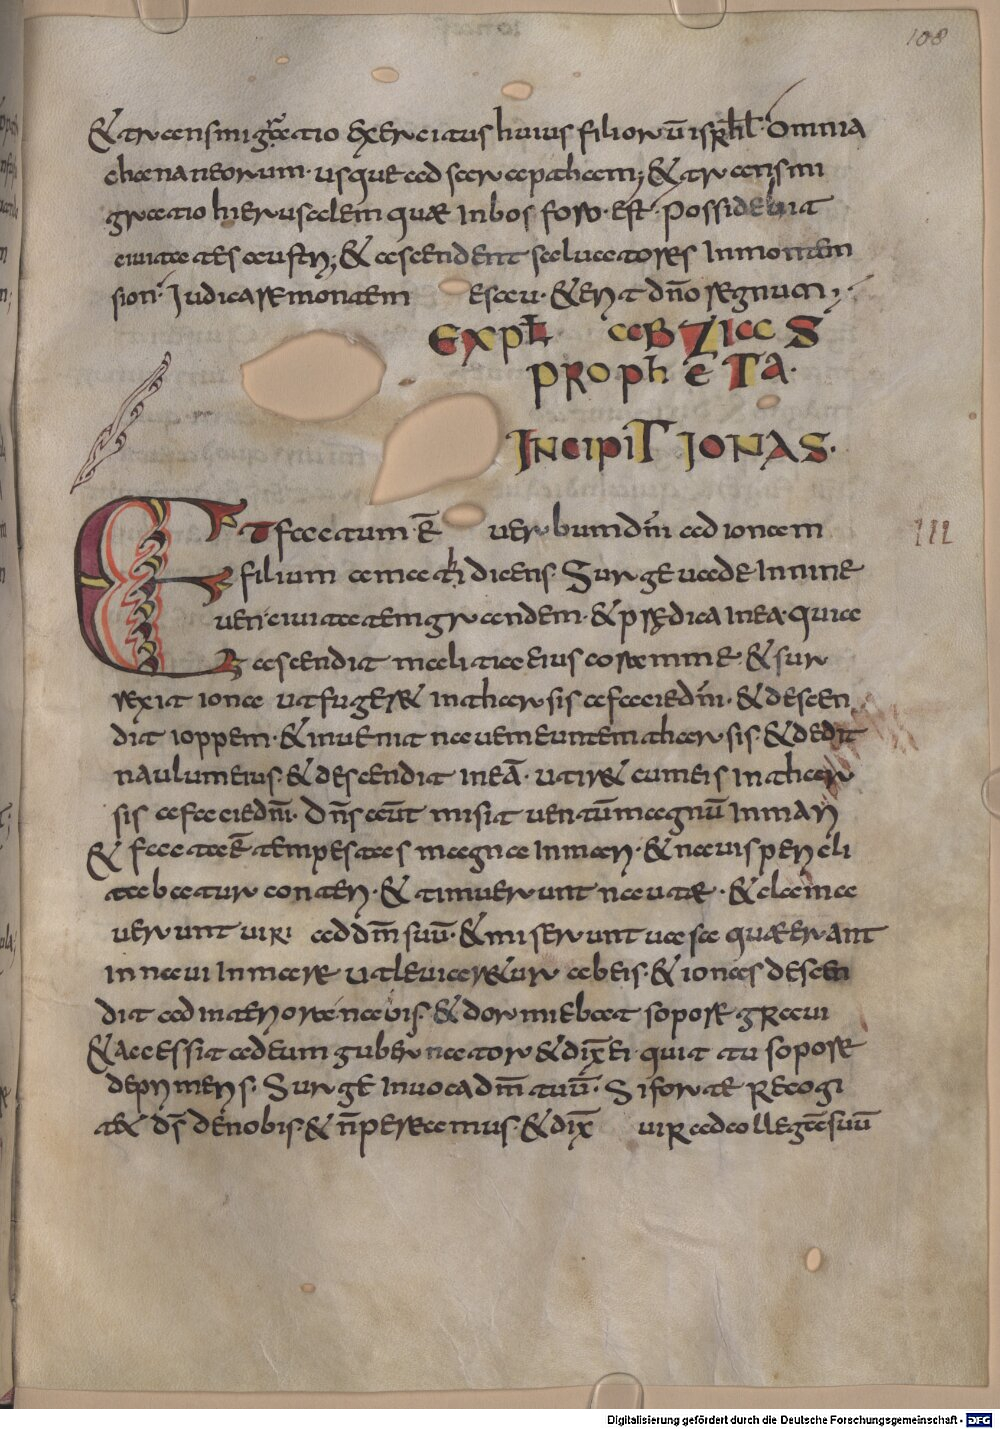 108
& transmigratio exercitus huius filiorū isrƚhƚ. omnia
chananeorum. usque ad saraptham; & transmi
gratio hierusalem quæ Inbosforo. est. possidebit
ciuitates austri; & ascendent saluatores Inmontem
sion. Iudicare montem esau. & erit dn̄o regnum;
expƚ abzias
propheta.
Incipit Ionas.
Et factum. ē uerbum dn̄i ad ionam
III
filium amathi dicens. Surge uade In nine
uen ciuitatem grandem. & prędica In ea. quia
ascendit malitia eius coram me & sur
rexit iona ut fugeret In tharsis a facie dn̄i. & descen
dit ioppem. & inuenit nauem euntem tharsis. & dedit
naulum eius. & descendit in eā. ut iret cum eis In thar
sis a facie dn̄i. Dn̄s aūt misit uentū magnū In mari
& facta ē tempestas magna In mari. & nauis pericli
tabatur conteri. & timuerunt nautæ. & clama
uerunt uiri ad dm̄ suū. & miserunt uasa quæ erant
in naui In mare ut leuiaretur ab eis. & ionas descen
dit ad interiora nabis. & dormiebat sopore graui
& accessit ad eum gubernator & dix̄ ei. quit tu sopore
deprimeris. Surge Inuoca dm̄ tuū. Si forte recogi
tet ds̄ de nobis. & n̄ pereamus. & dix̄ uir ad collegā suū
Digitalisierung gefördert durch die Deutsche Forschungsgemeinschaft - DFG